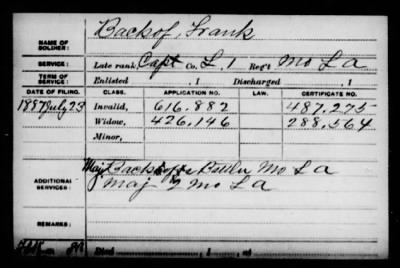 NAME OF SOLDIER: Backof, Frank
SERVICE: Late rank, Capt Co. L, 1 Reg't Mo L A
TERM OF SERVICE: Enlisted , 1 Discharged , 1
DATE OF FILING. CLASS. APPLICATION NO. LAW. CERTIFICATE NO.
1887 July 23 Invalid, 616.882 487.275
Widow, 426.146 288.564
Minor,
ADDITIONAL SERVICES: Maj Backof's Battln Mo L A
Maj 2 Mo L A
REMARKS:
Died , 1 , at